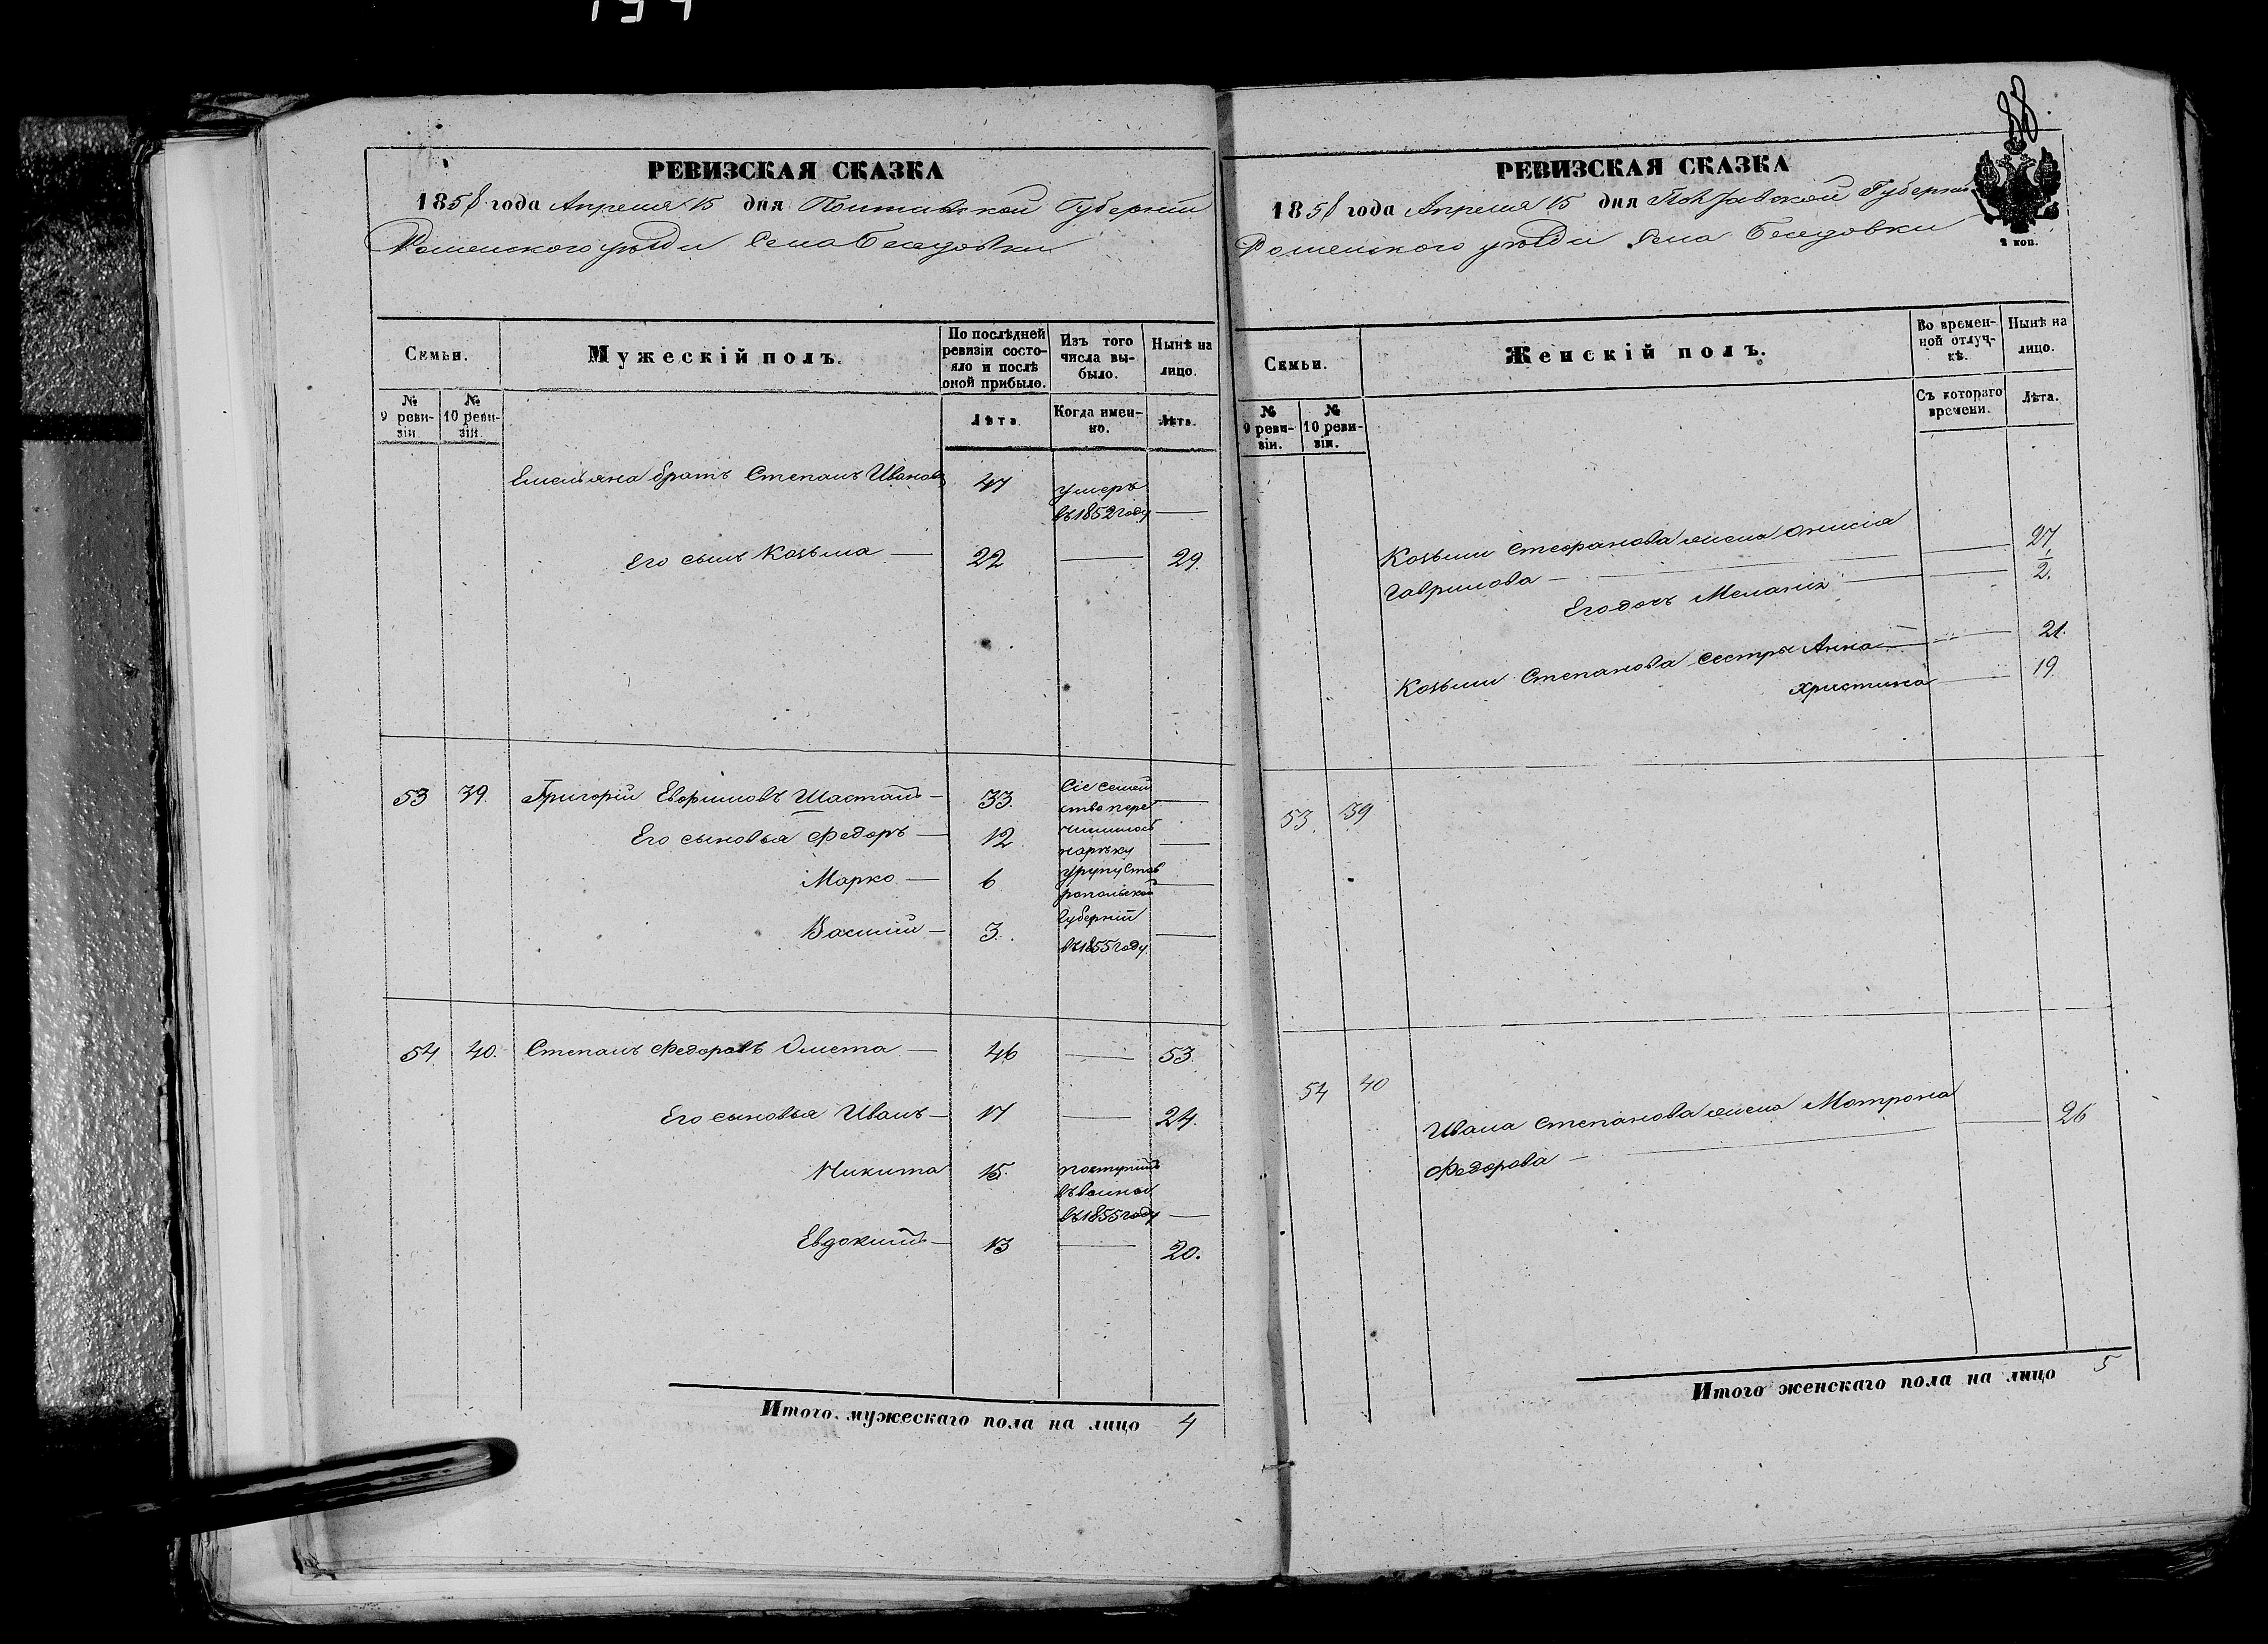 РЕВИЗСКАЯ СКАЗКА
1858 года Апреля 15 дня Полтавской Губерніи
Роменского уѣзда Села Беседовки
Семьи.
Мужескій полъ.
По послѣдней ревизіи состояло и послѣ оной прибыло.
Изъ того числа выбыло.
Нынѣ на лицо.
№ 9 ревизіи.
№ 10 ревизіи.
Лѣта.
Когда именно.
Лѣта.
Емельяна братъ Степанъ Ивановъ 47 умеръ
въ 1852 году —
Его сынъ Козьма — 22 — 29
53 39. Григорій Евфимовъ Шастанъ — 33. Сіе семей
ство пере —
Его сыновья Федоръ — 12 числилось
нарѣку —
Марко — 6 Урупу Став
ропольской —
Василій — 3. Губерніи
въ 1855 году. —
54 40. Степанъ Федоровъ Омета — 46 — 53.
Его сыновья Иванъ — 17 — 24.
Никита 15. поступилъ
въ 1855 году —
Евдокимъ — 13 — 20.
Итого мужескаго пола на лицо 4
88.
РЕВИЗСКАЯ СКАЗКА
1858 года Апреля 15 дня Полтавской Губерніи
Роменского уѣзда Села Беседовки
2 коп.
Семьи.
Женскій полъ.
Во временной отлучкѣ.
Нынѣ на лицо.
№ 9 ревизіи.
№ 10 ревизіи.
Съ котораго времени.
Лѣта.
Козьми Стефанова жена Онисія
Гаврилова — — 27
Его дочь Меланія — — 2.
Козьми Степанова сестры Анна — — 21.
Христина — 19
53. 39
54 40
Ивана Степанова жена Мотрона
Федорова — — 26
Итого женскаго пола на лицо 5